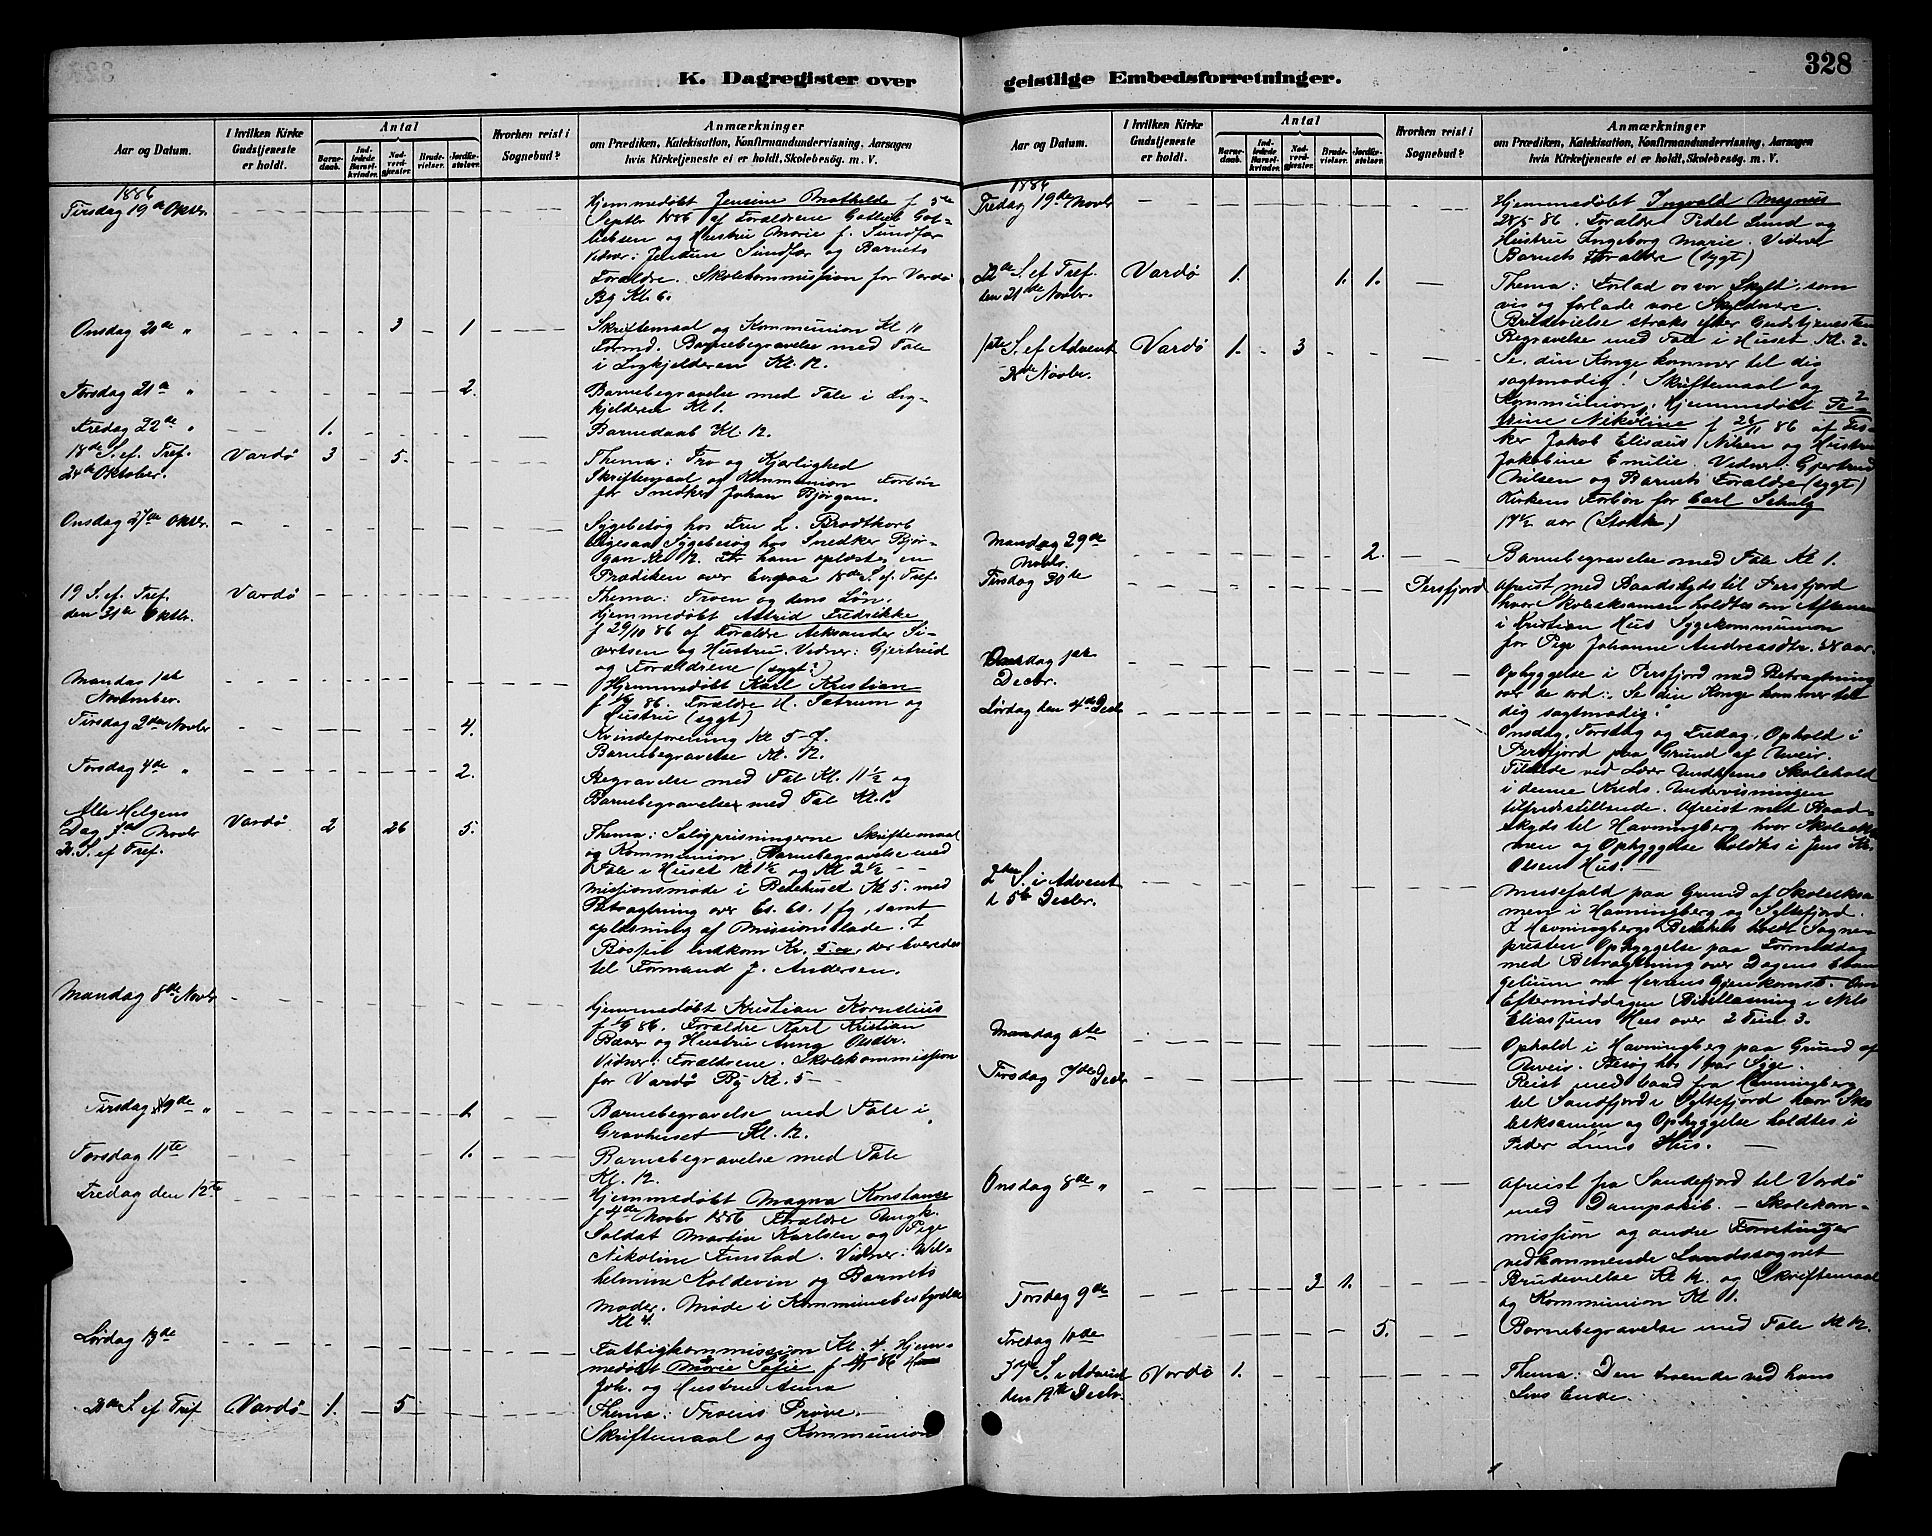 328
K. Dagregister over geistlige Embedsforretninger.
Aar og Datum.
I hvilken Kirke Gudstjeneste er holdt.
Antal
Barne-daab.
Ind-ledede Barsel-kvinder.
Nad-verd-gjester.
Brude-vielser.
Jordfæ-stelser.
Hvorhen reist i Sognebud?
Anmærkninger
om Prædiken, Katekisation, Konfirmandundervisning, Aarsagen
hvis Kirketjeneste ei er holdt, Skolebesøg. m. V.
1886
Tirsdag 19de Oktbr.
Hjemmedøbt Jensine Mathilde f 5te
Septbr 1886 af Forældrene Gotlieb Got-
liebsen og Hustru Marie f. Sundfær
Vidner: Jensine Sundfær og Barnets
Forældre. Skolekommission for Vardø
By Kl. 6.
Onsdag 20de " 3 1
Skriftemaal og Kommunion Kl 11
Formd. Barnebegravelse med Tale
i Ligkjelderen Kl. 12.
Torsdag 21de " 2.
Barnebegravelse med Tale i Lig-
kjelderen Kl 1.
Fredag 22de " 1.
Barnedaab Kl. 12.
18de S. ef. Tref. Vardø 3 5.
24de Oktober.
Thema: Tro og Kjærlighed
Skriftemaal og Kommunion Forbøn
for Snedker Johan Bjørgan.
Onsdag 27de Oktbr.
Sygebesøg hos Fru L. Brodtkorb
Ligesaa Sygebesøg hos Snedker Bjør-
gan Kl 12. For ham oplæstes en
Prædiken over Evg. paa 18de S. ef. Tref.
19 S. ef. Tref. Vardø
den 31te Oktbr.
Thema: Troen og dens Løn.
Hjemmedøbt Astrid Fredrikke
f 29/10 86 af Forældre Aleksander Si-
vertsen og Hustru. Vidner: Gjertrud
og Forældrene (sygt?)
Mandag 1ste
November.
Hjemmedøbt Karl Kristian
og
Hustru (sygt)
Tirsdag 2den Novbr 4.
Kvindeforening Kl 5-7.
Barnebegravelse Kl. 12.
Torsdag 4de " 2.
Begravelse med Tale Kl. 11½ og
Barnebegravelse med Tale Kl. 1.
Alle Helgens
Dag 7de Novbr Vardø 2 26 5.
S. ef Tref.
Thema: Saligprisningerne Skriftemaal
og Kommunion. Barnebegravelse med
Tale i Huset Kl 1½ og Kl 2½ -
Missionsmøde i Bedehuset Kl 5. med
Betragtning over Es. 60. 1 fg, samt
oplæsning af Missionsblade. I
Bøssen indkom Kr. 5.00 der leveredes
til Formand J. Andersen.
Mandag 8de Novbr
Hjemmedøbt Kristian Kornelius
Forældre Karl Kristian
og Hustru Anna Olsdtr.
Vidner: Forældrene. Skolekommission
for Vardø By Kl. 5 -
Tirsdag 9de " 1.
Barnebegravelse med Tale i
Gravhuset Kl. 12.
Torsdag 11te 1.
Barnebegravelse med Tale
Kl. 12.
Fredag den 12te
Hjemmedøbt Magna Konstanse
f 4de Novbr 1886 Forældre Ungk.
Soldat Martin Karlsen og Pige
Nikoline Finstad. Vidner: Wil-
helmine Koldevin og Barnets
Moder. Møde i Kommunebestyrelse
Kl 4.
Lørdag 13de
Fattigkommission Kl. 4. Hjem-
medøbt Marie Sofie
Joh. og Hustru Anna
S. ef Tref Vardø 1. 5
Thema: Troens Prøve.
Skriftemaal og Kommunion
Aar og Datum.
I hvilken Kirke Gudstjeneste er holdt.
Antal
Barne-daab.
Ind-ledede Barsel-kvinder.
Nad-verd-gjester.
Brude-vielser.
Jordfæ-stelser.
Hvorhen reist i Sognebud?
Anmærkninger
om Prædiken, Katekisation, Konfirmandundervisning, Aarsagen
hvis Kirketjeneste ei er holdt, Skolebesøg. m. V.
1886
Fredag 19de Novbr
Hjemmedøbt Ingvald Magnus
Forældre Peder Lund og
Hustru Ingeborg Marie. Vidner
Barnets Forældre (sygt)
22de S. ef Tref. Vardø 1. 1. 1.
den 21de Novbr.
Thema: Forlad os vor Skyld, som
vi og forlade vore Skyldnere
Brudevielse straks efter Gudstjenesten
Begravelse med Tale i Huset Kl. 2.
1ste S. ef Advent Vardø 1. 3
28de Novbr.
Se, din Konge kommer til dig
sagtmodig! Skriftemaal og
Kommunion. Hjemmedøbt Pe-
trine Nikoline af Fis-
ker Jakob Eliseus Nilsen og Hustru
Jakobine Emilie. Vidner: Gjertrud
Nilsen og Barnets Forældre (sygt)
Kirkens Forbøn for Carl Schulz
17½ aar
Mandag 29de 2.
Novbr.
Barnebegravelse med Tale Kl 1.
Tirsdag 30te Persfjord
Afreist med Baadskyds til Persfjord
hvor Skoleeksamen holdtes om Aftenen
i Kristian Hus Sygekommunion
for Pige Johanne Andreasdtr. aar.
Onsdag 1ste
Decbr.
Opbyggelse i Persfjord med Betragtning
over de ord: "Se din Konge kommer til
dig sagtmodig."
Lørdag den 4de Decbr
Onsdag, Torsdag og Fredag, Ophold i
Persfjord paa Grund af Uveir.
Tilstede ved Lærer Skolehold
i denne Kreds. Undervisningen
tilfredsstillende. Afreist med Baad-
skyds til Havningberg hvor Skoleeksa-
men og Opbyggelse holdtes i Jens Kr.
Olsens Hus. -
2den S. i Advent
d 5te Decbr.
Messefald paa Grund af Skoleeksa-
men i Havningberg og Syltefjord.
I Havningbergs Bedehus holdt Sogne-
presten Opbyggelse paa Formiddag
med Betragtning over Dagens Evan-
gelium om Herrens Gjenkomst. Om
Eftermiddagen Bibellæsning i Nils
Eliassens Hus over 2 Tim 3.
Mandag 6te
Ophold i Havningberg paa Grund af
Uveir. Besøg hos 1 par Syge.
Tirsdag 7de Decbr
Reist med baad fra Havningberg
til Sandfjord i Syltefjord hvor Sko-
leeksamen og Opbyggelse holdtes i
Peder Hus.
Onsdag 8de "
Afreist fra Sandfjord til Vardø
med Dampskib. - Skolekom-
mission og andre Forretninger
vedkommende Landssognet
Torsdag 9de 3 1.
Brudevielse Kl 12. og Skriftemaal
og Kommunion Kl 1.
Fredag 10de 5.
Barnebegravelse med Tale Kl 12.
3die S. i Advent Vardø 1.
den 12te Decbr.
Thema: Den troende ved hans
Livs Ende.